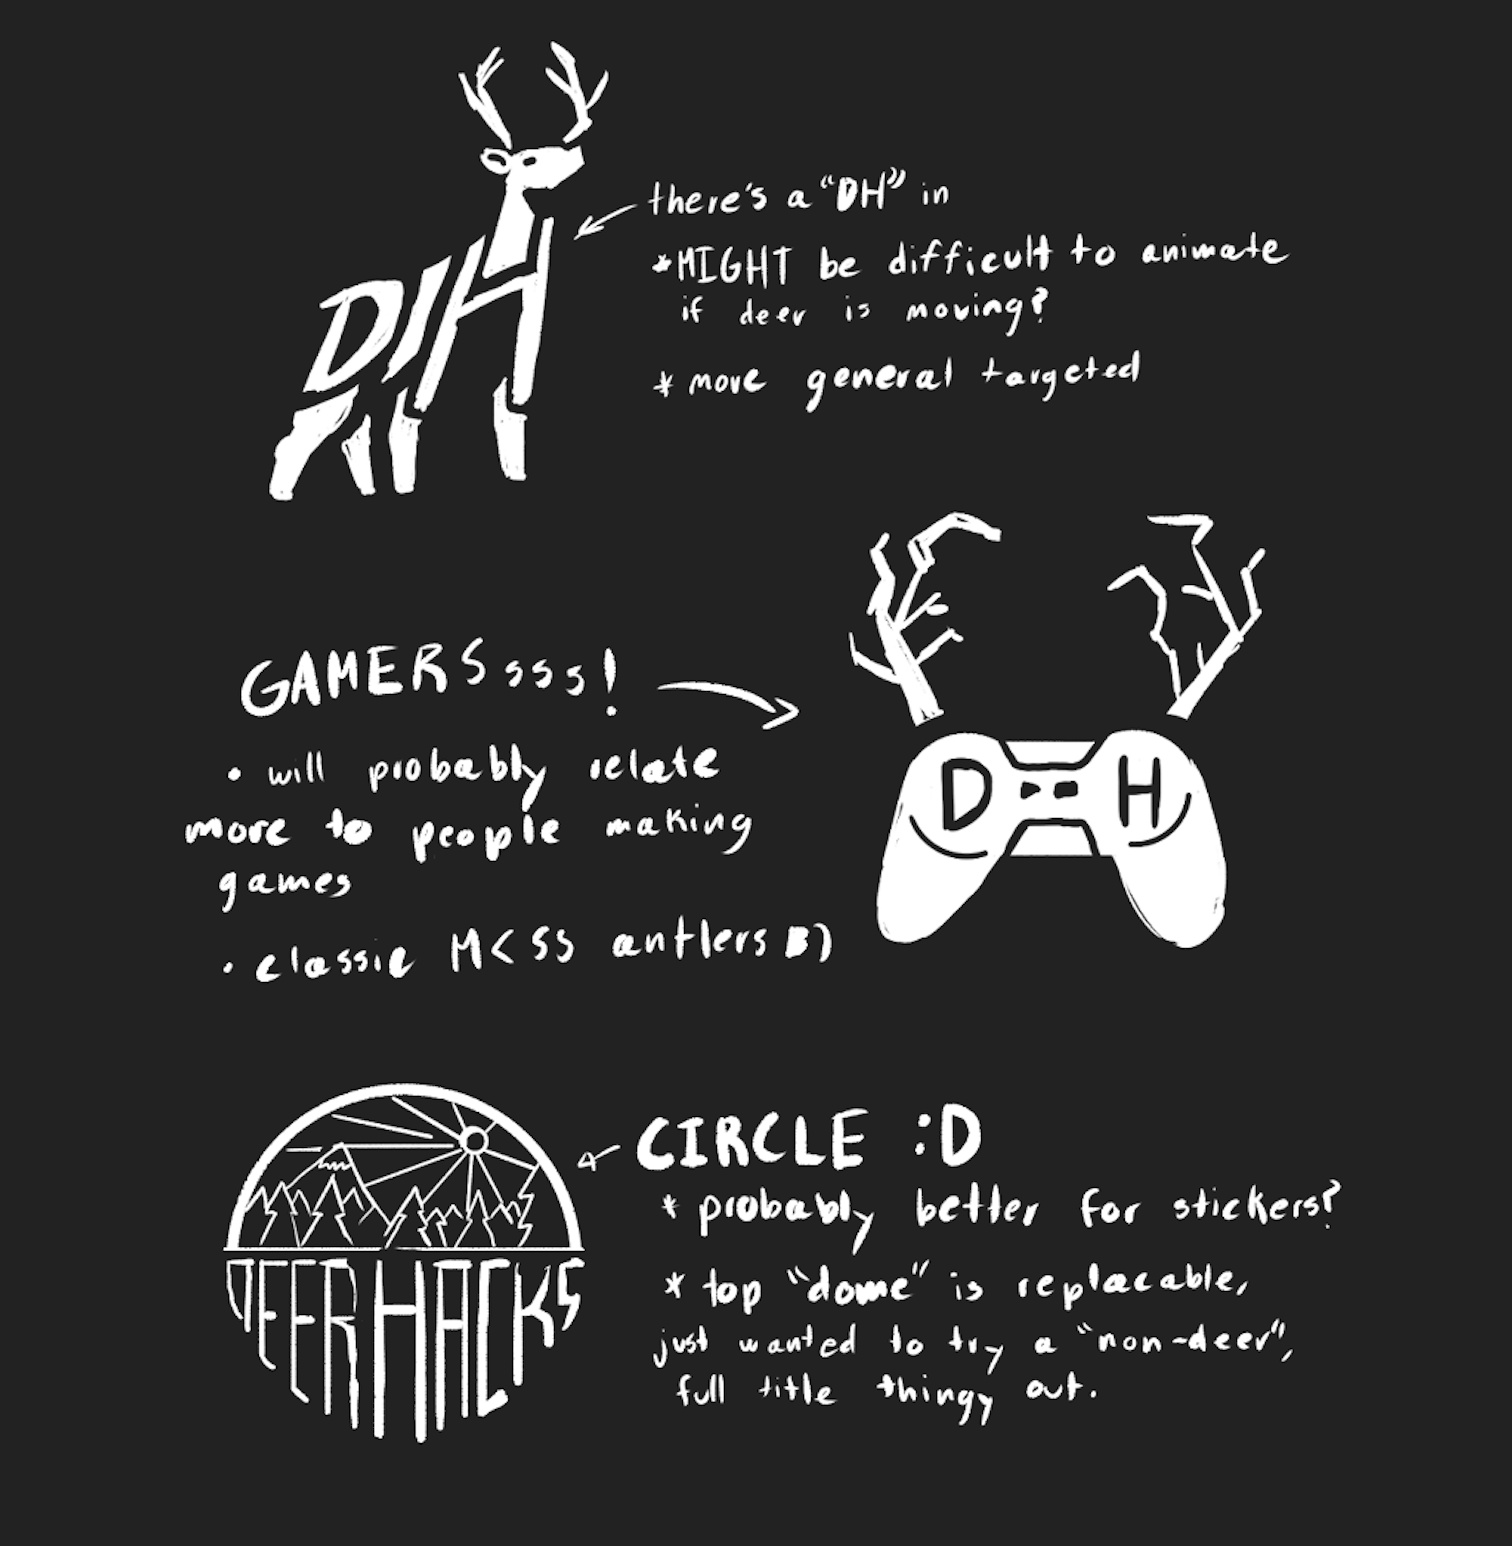 there's a "DH" in
*MIGHT be difficult to animate
if deer is moving?
* more general targeted
DH
GAMERSsss!
• will probably relate
more to people making
games
• classic MCSS antlers B)
D H
CIRCLE :D
* probably better for stickers?
* top "dome" is replacable,
just wanted to try a "non-deer",
full title thingy out.
DEERHACKS